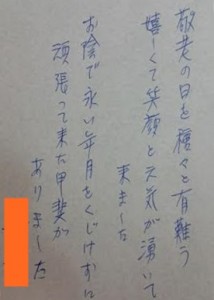 敬老の日を種々と有難う
嬉しくて笑顔と元気が湧いて
来ました
お陰で永い年月をくじけずに
頑張って来た甲斐が
ありました